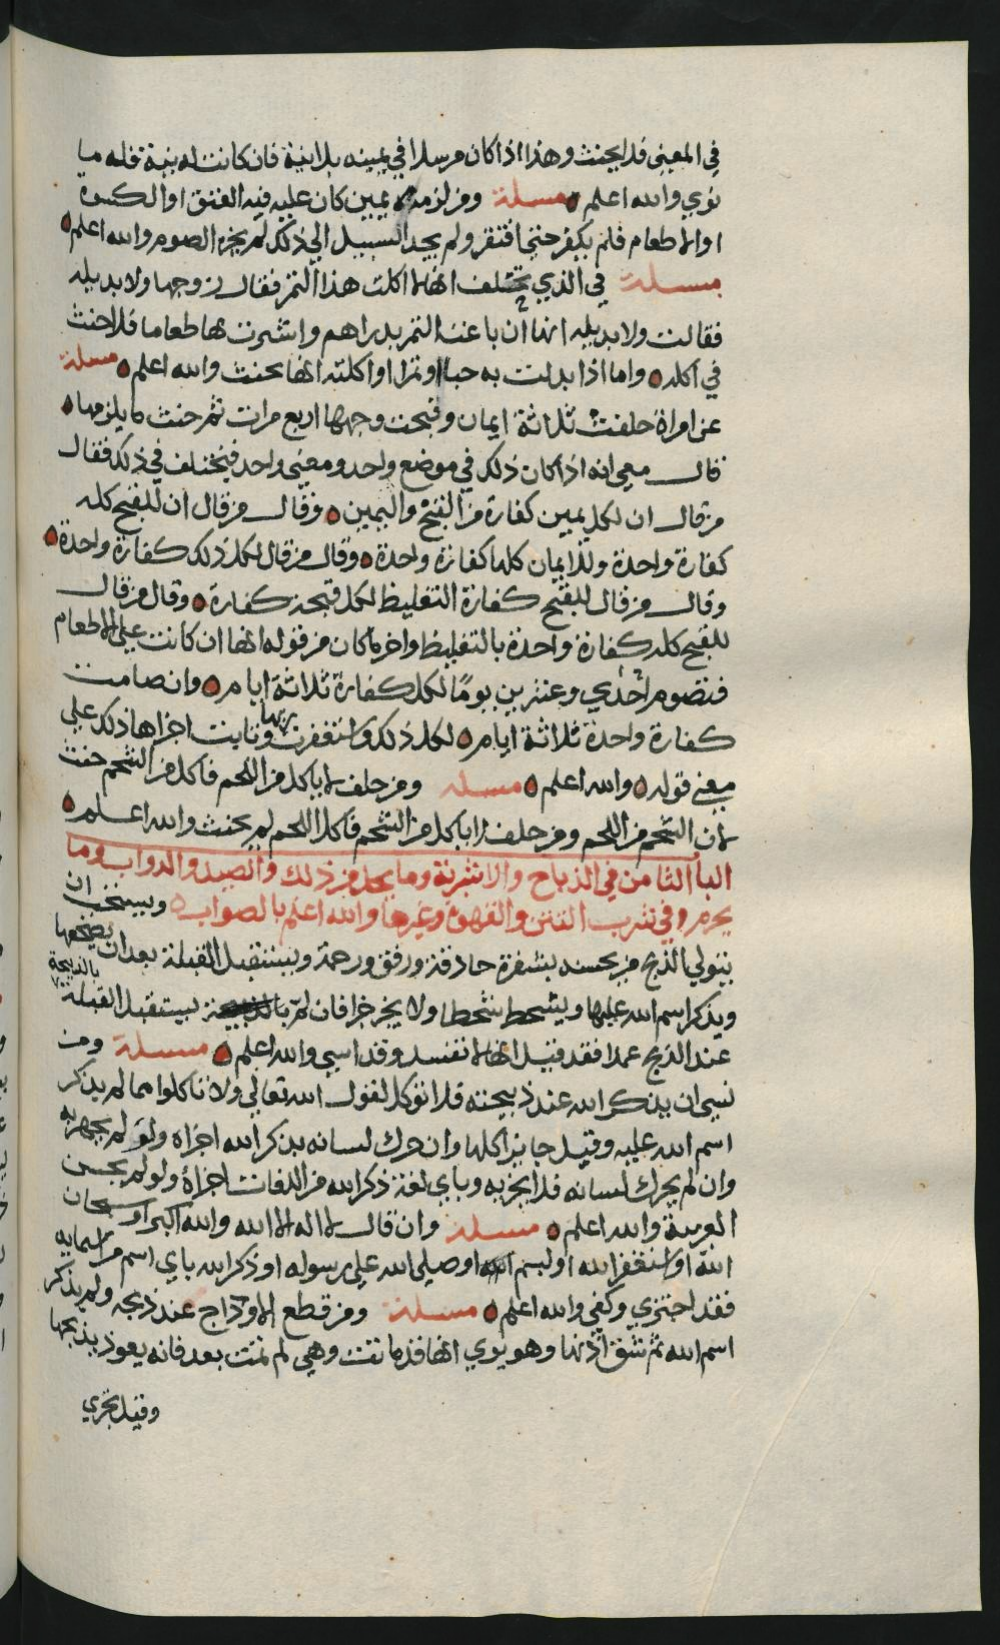 في المعنى فلا يحنث وهذا اذا كان مرسلا في يمينه بلا نية فان كانت له نية فله ما
نوي والله اعلم مسلة ومن لزمه يمين كان عليه فيه العتق او الكسوة
او الاطعام فلم يكفر حتى افتقر ولم يجد السبيل الي ذلك لم يجزه الصوم والله اعلم
مسلة في الذي تحلف انها لا اكلت هذا التمر فقال زوجها ولا بديله
فقالت ولا بديله انها ان باعت التمر بدراهم واشترت بها طعاما فلا حنث
في اكله واما اذا بدلت به حبا او تمرا او اكلته انها تحنث والله اعلم مسلة
عن امراة حلفت ثلاثة ايمان وقبحت وجهها اربع مرات ثم حنث ما يلزمها
قال معي انه اذا كان ذلك في موضع واحد ومعنى واحد فيختلف في ذلك فقال
من قال ان لكل يمين كفارة من القبح واليمين وقال من قال ان للقبح كله
كفارة واحدة وللايمان كلها كفارة واحدة وقال من قال لكل ذلك كفارة واحدة
وقال من قال للقبح كفارة التغليظ لكل قبحة كفارة وقال من قال
للقبح كله كفارة واحدة بالتغليظ واخر ما كان من قوله انها ان كانت على الاطعام
فتصوم احدي وعشرين يوما لكل كفارة ثلاثة ايام وان صامت
كفارة واحدة ثلاثة ايام لكل ذلك واستغفرت ربها وتابت اجزاها ذلك على
معنى قوله والله اعلم مسله ومن حلف لا ياكل من اللحم فاكل من الشحم حنث
لان الشحم من اللحم ومن حلف لا ياكل من الشحم فاكل اللحم لم يحنث والله اعلم
الباب الثامن في الذباح والاشربة وما يحل من ذلك والصيد والدواب وما
يحرم وفي شرب التتن والقهوة وغيرها والله اعلم بالصواب ويستحب ان
يتولي الذبح من يحسنه بشفرة حادة ورفق ورحمة ويستقبل القبلة بعد ان يضجعها
ويذكر اسم الله عليها ويشحط شحطا ولا يخز خزا فان لم بالذبيحة يستقبل القبلة
عند الذبح عمدا فقد قيل انها لا تفسد وقد اسي والله اعلم مسلة ومن
نسي ان يذكر الله عند ذبيحته فلا توكل لقول الله تعالي ولا تاكلوا مما لم يذكر
اسم الله عليه وقيل جايز اكلها وان حرك لسانه بذكر الله اجزاه ولو لم يجهر به
وان لم يحرك لسانه فلا يجزيه وباي لغة ذكر الله من اللغات اجزاه ولو لم يحسن
العربية والله اعلم مسلة وان قال لا اله الا الله والله اكبر او سبحان
الله او استغفر الله او بسم الله او صلى الله على رسوله او ذكر الله باي اسم من اسمايه
فقد اجتزي وكفي والله اعلم مسلة ومن قطع الاوداج عند ذبحه ولم يذكر
اسم الله ثم شق اذنها وهو يوي انها قد ماتت وهي لم تمت بعد فانه يعود يذبحها
وقيل تجزي